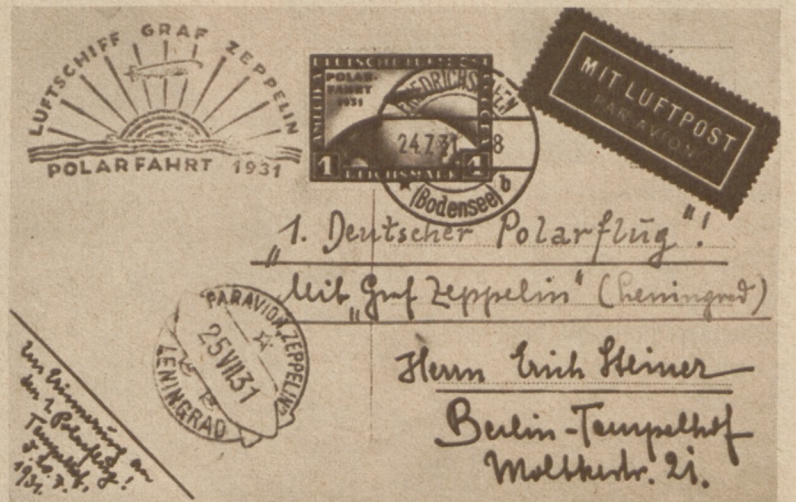 LUFTSCHIFF GRAF ZEPPELIN
POLARFAHRT 1931
POLAR-
FAHRT
1931
1 1
REICHSMARK
FRIEDRICHSHAFEN
24.7.31. 8
(Bodensee) b
MIT LUFTPOST
PAR AVION
„1. Deutscher Polarflug"!
Mit „Graf Zeppelin" (Leningrad)
PARAVION ZEPPELIN
25 VII 31
LENINGRAD
Herrn Erich Steiner
Berlin-Tempelhof
Moltkestr. 21.
Zur Erinnerung an
den 1. Polarflug!
Tempelhof,
1931.